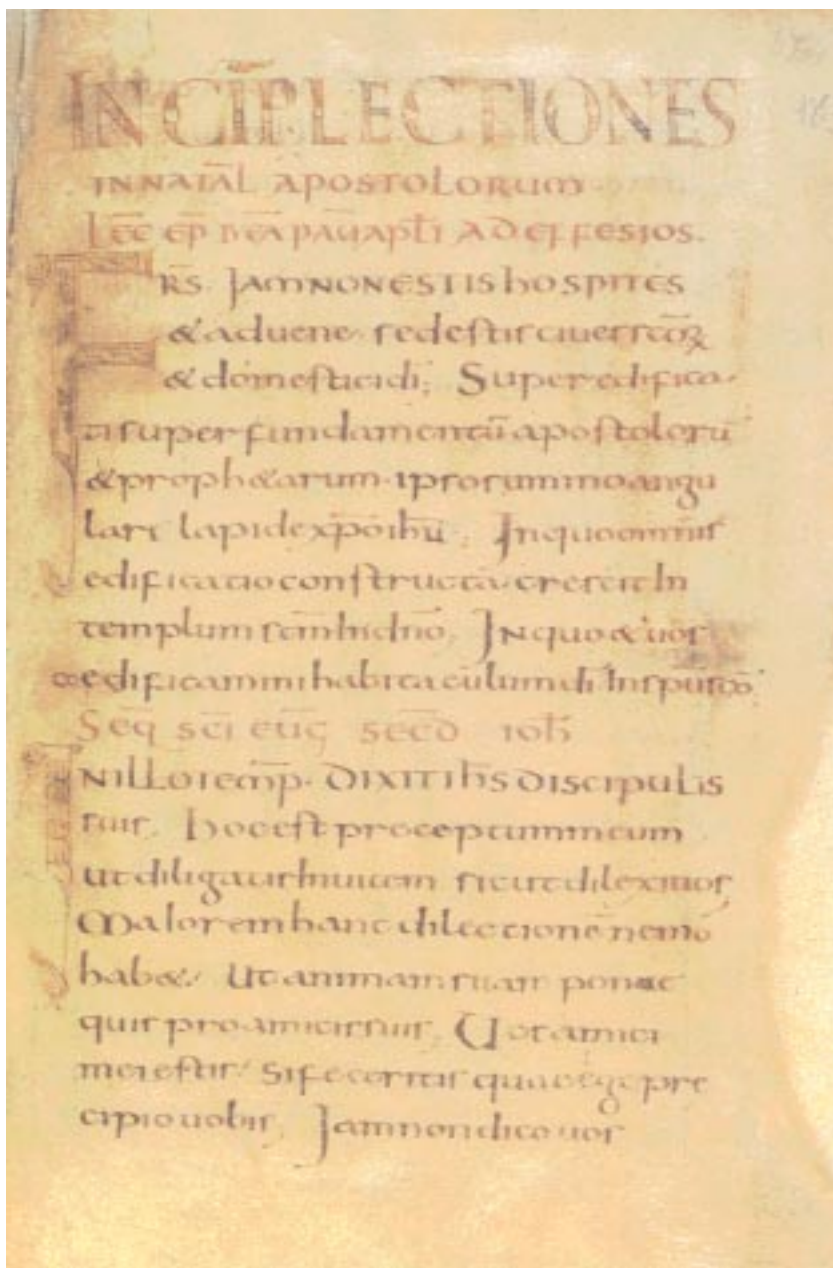 INCIP̄ LECTIONES
IN NATAL̄ APOSTOLORUM
LEC̄ EP̄ BEĀ PAULI APL̄I AD EFFESIOS.
FRS̄. IAM NON ESTIS hOSPITES
& aduene. sed estis ciues sc̄orꝝ
& domestici di; Superedifica
ti super fundamentū apostolorū
& proph&arum. ipso summo angu
lari lapide xp̄o ihū; In quo omnis
edificatio constructa. crescit In
templum sc̄m In dn̄o, In quo & uos
coedificamini habitaculum dī In sp̄u sc̄o,
Seq̄ sc̄i euḡ secd̄ ioh̄
IN ILLO TEMP̄. DIXIT ih̄S DISCIPULIS
suis, hoc est preceptum meum
ut diligatis Inuicem sicut dilexi uos,
Maiorem hanc dilectionē nemo
hab&. Ut animam suam ponat
quis pro amicis suis, Uos amici
mei estis. Si feceritis quae ego pre
cipio uobis, Iam non dico uos